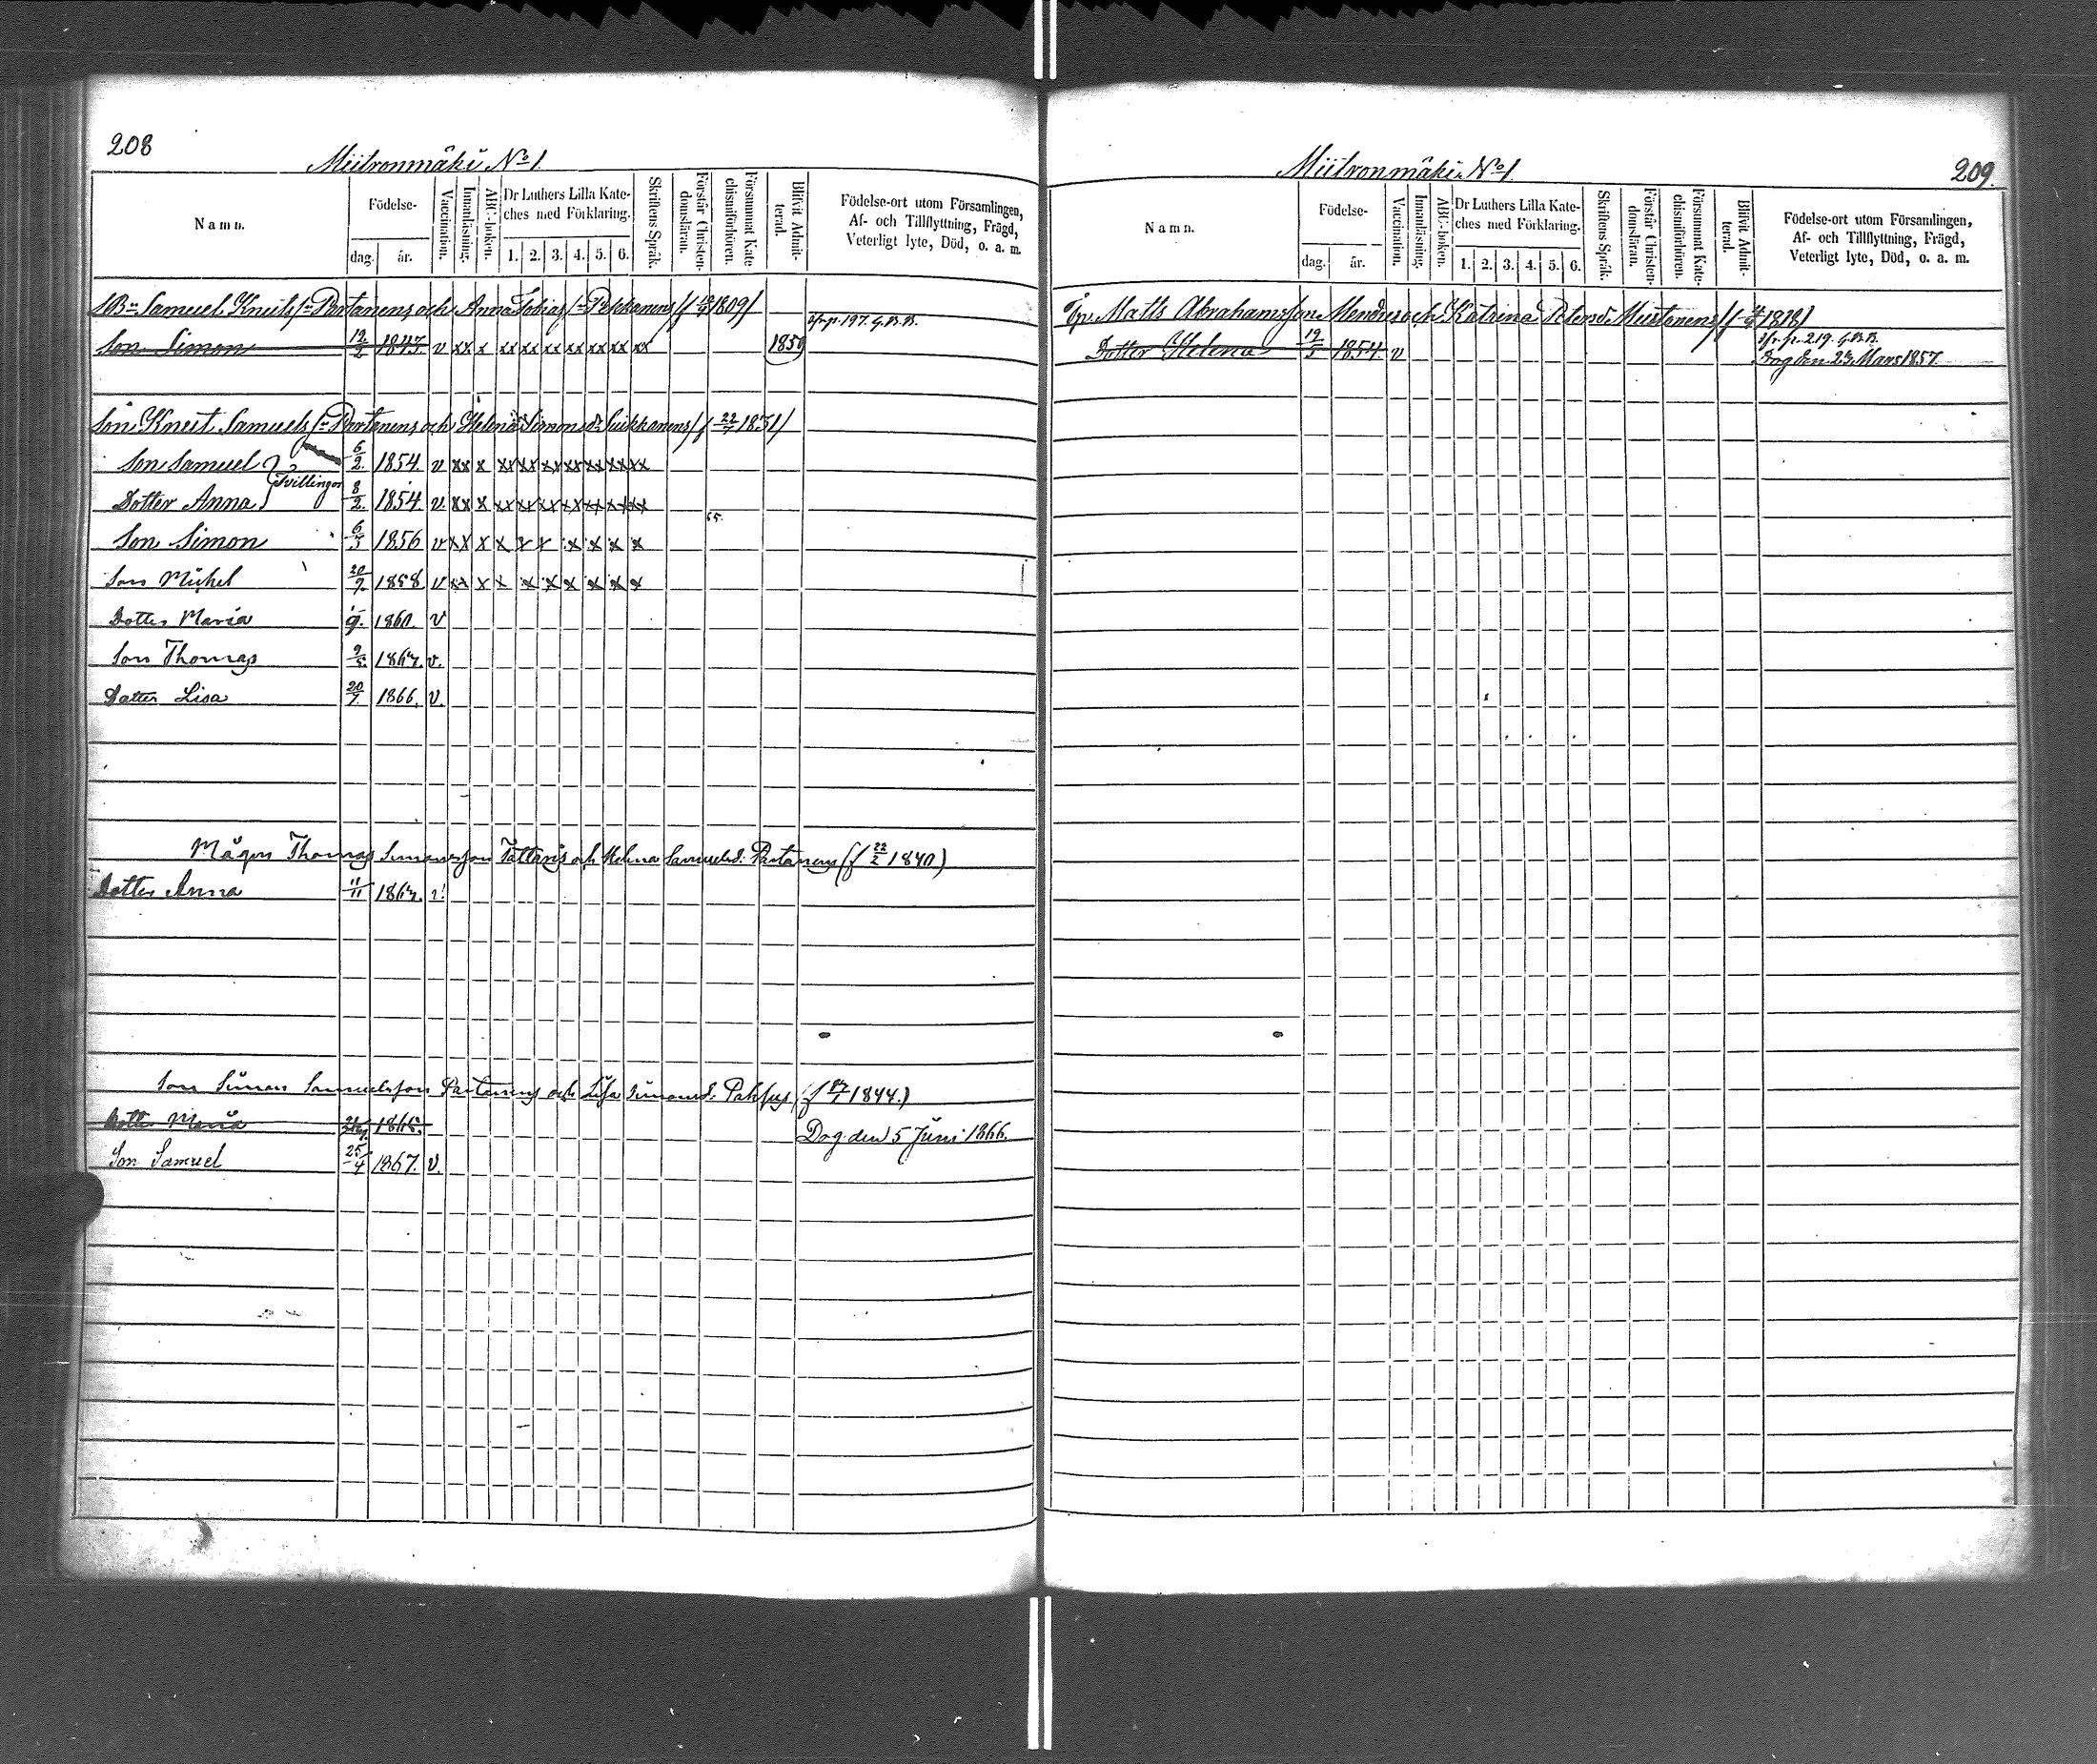 208
Miitronmäki No 1.
Namn.
Födelse-
dag. år.
Vaccination.
Innanläsning.
ABC-boken.
Dr Luthers Lilla Kate-
ches med Förklaring.
1. 2. 3. 4. 5. 6.
Skriftens Språk.
Förstår Christen-
domsläran.
Försummat Kate-
chismiförhören.
Blifvit Admit-
terad.
Födelse-ort utom Församlingen,
Af- och Tillflyttning, Frägd,
Veterligt lyte, Död, o. a. m.
Samuel Knuts Sn Partanens och Anna Tobias Pekkanens 1809/
p. 197.
Son Simon 12/2 1843. v xx x xx xx xx xx xx xx xx 1859
Son Knut Samuels Sn Partanens och Helena Simons dr Suikkanens /f 22/7 1831/
Son Samuel 6/2 1854. v xx x xx xx xx xx xx xx xx
Tvillingar
Dotter Anna 8/2 1854. v. xx x xx xx xx xx xx xx xx
65.
Son Simon 6/5 1856 v xx x x x x x x x x
Son Michel 20/9. 1858. v xx x x x x x x x x
Dotter Maria 1860. v
Son Thomas 9/5. v.
Dotter Lisa 20/7. 1866. v.
Mågen Thomas Simonsson Tattaris och Helena Samuelsd. Partanens (f 22/2 1840)
Dotter Anna 11/11
Son Simon Samuelsson Partanens och Lisa Simonsd. (f 1844.)
Dotter Maria 1865.
Dog den 5 Juni 1866.
Son Samuel 25/4 1867. v.
Miitronmäki No 1.
209.
Namn.
Födelse-
dag. år.
Vaccination.
Innanläsning.
ABC-boken.
Dr Luthers Lilla Kate-
ches med Förklaring.
1. 2. 3. 4. 5. 6.
Skriftens Språk.
Förstår Christen-
domsläran.
Försummat Kate-
chismiförhören.
Blifvit Admit-
terad.
Födelse-ort utom Församlingen,
Af- och Tillflyttning, Frägd,
Veterligt lyte, Död, o. a. m.
Matts Abrahamsson och Katrina Petersdr 1818/
p. 219.
Dotter Helena 19/5 1854. v Dog den 23 Mars 1857.